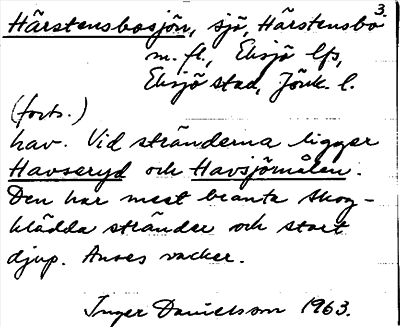 3.
Härstensbosjön, sjö, Härstensbo
m.fl., Eksjö lfs,
Eksjö stad, Jönk. l.
(forts.)
hav. Vid stränderna ligger
Havseryd och Havsjömålen.
Den har mest branta skog-
klädda stränder och stort
djup. Anses vacker.
Inger Danielsson 1963.